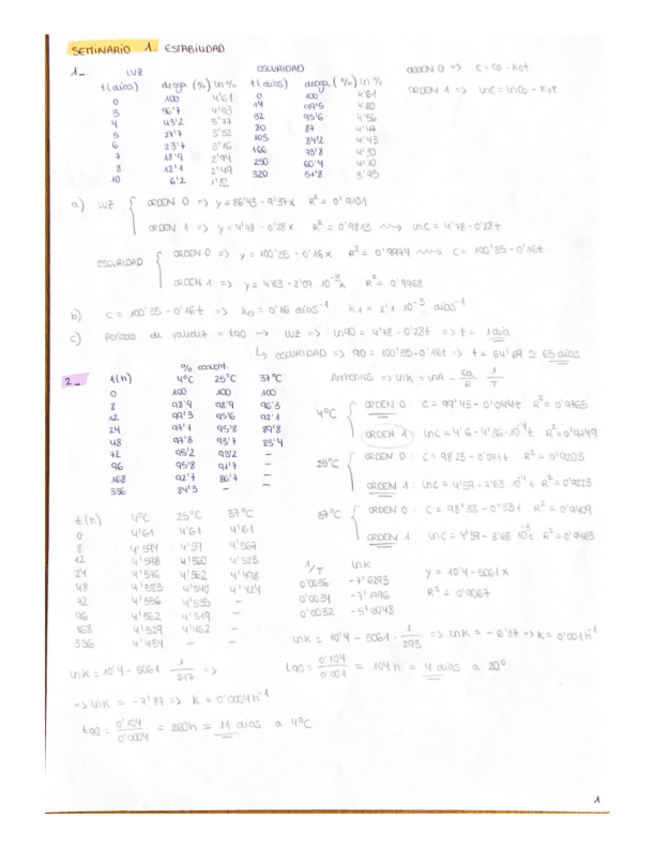 SEMINARIO 1. ESTABILIDAD
1_. LUZ OSCURIDAD ORDEN 0 => C = C0 - K0t
t(días) droga (%) ln % t(días) droga (%) ln % ORDEN 1 => lnC = lnC0 - K1t
0 100 4'61 0 100 4'61
3 96'7 14 99'5 4'60
4 43'2 3'77 32 95'6 4'56
5 27'7 3'32 80 87 4'47
6 23'4 3'16 105 84'2 4'43
7 18'9 2'94 166 73'8 4'30
8 12'1 2'49 250 60'4 4'10
10 6'2 1'82 320 51'8 3'95
a) LUZ { ORDEN 0 => y = 86'43 - 9'37x R² = 0'9101
ORDEN 1 => - 0'28x R² = 0'9813 lnC = - 0'28t
OSCURIDAD { ORDEN 0 => y = 100'35 - 0'16x R² = 0'9974 C = 100'35 - 0'16t
ORDEN 1 => y = 4'63 - 10⁻³x R² = 0'9968
b) C = 100'35 - 0'16t => K0 = 0'16 días⁻¹ K1 = 2'1 10⁻³ días⁻¹
c) Período de validez = t90 → LUZ => ln90 = 4'48 - 0'28t => t = 1 día
↳ OSCURIDAD => 90 = 100'35 - 0'16t => t = 64'69 ≅ 65 días
2_ % concent.
t(h) 4°C 25°C 37°C Arrhenius => lnK = lnA - Ea/R · 1/T
0 100 100 100
8 98'9 98'9 96'3
12 99'3 95'6 92'1
24 97'1 95'8 89'8
48 97'8 93'7 83'4
72 95'2 93'2 -
96 95'8 91'7 -
168 92'7 86'7 -
336 84'3 - -
4°C { ORDEN 0: C = 99'43 - 0'044t R² = 0'9765
ORDEN 1: lnC = 4'6 - 10⁻⁴t R² = 0'9749
25°C { ORDEN 0: C = 98'23 - 0'071t R² = 0'9203
ORDEN 1: lnC = 4'59 - 7'63 · 10⁻⁴t R² =
37°C { ORDEN 0: C = - 0'33t R² = 0'9409
ORDEN 1 lnC = 4'59 - 3'68 10⁻³t R² = 0'9463
t(h) 4°C 25°C 37°C
0 4'61 4'61 4'61
8 4'594 4'59 4'567
12 4'598 4'560 4'523
24 4'576 4'562 4'498
48 4'583 4'540 4'424
72 4'556 4'535 -
96 4'562 4'519 -
168 4'529 4'462 -
336 4'434 - -
1/T lnK y = 10'4 - 5061x
0'0036 -7'6293 R² = 0'9067
0'0034 -7'1796
0'0032 -5'6048
lnK = 10'4 - 5061 · 1/293 => lnK = -6'87 => K = 0'001h⁻¹
t90 = 0'104/0'001 = 104h = 4 días a 20°
lnK = 10'4 - 5061 1/277 =>
=> lnK = -7'87 => K = 0'0004h⁻¹
t90 = 0'104/0'0004 = 260h = 11 días a 4°C
1